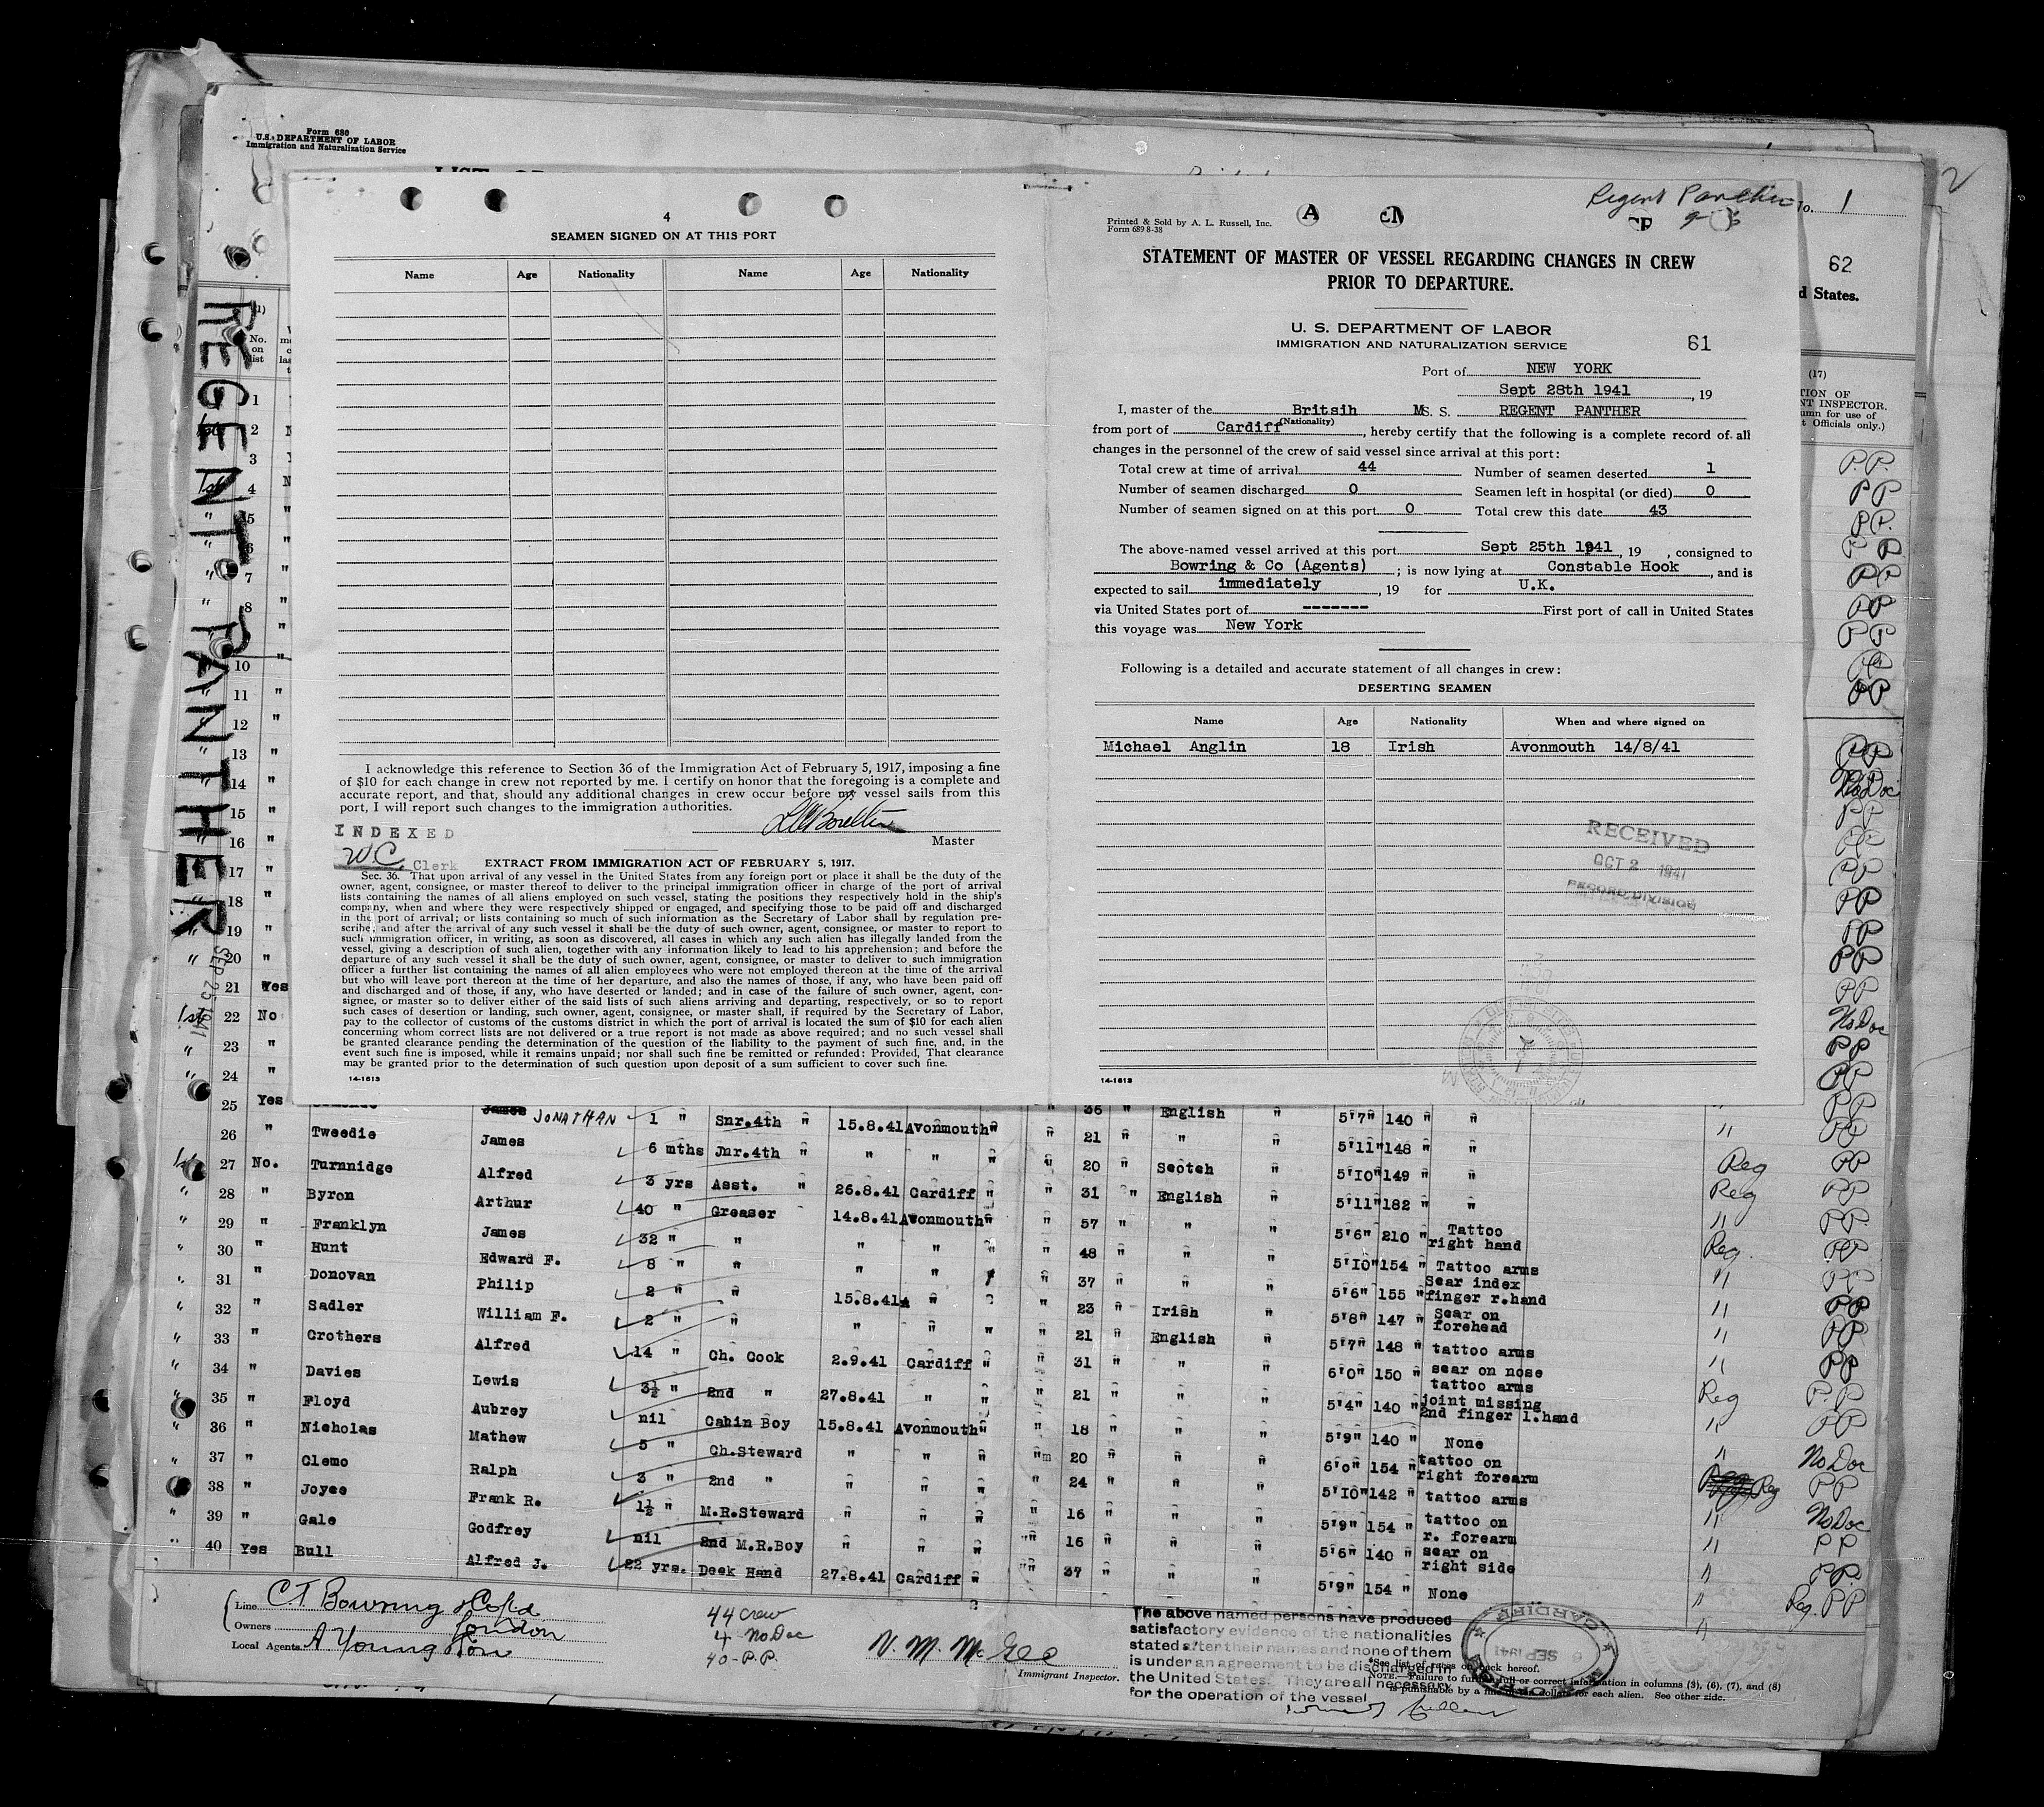 Form 680
U.S. DEPARTMENT OF LABOR
Immigration and Naturalization Service
Regent Panther
No. 1
2
62
d States.
REGENT PANTHER
SEP 25 1941
4
SEAMEN SIGNED ON AT THIS PORT
Name Age Nationality Name Age Nationality
I acknowledge this reference to Section 36 of the Immigration Act of February 5, 1917, imposing a fine
of $10 for each change in crew not reported by me. I certify on honor that the foregoing is a complete and
accurate report, and that, should any additional changes in crew occur before my vessel sails from this
port, I will report such changes to the immigration authorities.
Master
INDEXED
WC Clerk
EXTRACT FROM IMMIGRATION ACT OF FEBRUARY 5, 1917.
Sec. 36. That upon arrival of any vessel in the United States from any foreign port or place it shall be the duty of the
owner, agent, consignee, or master thereof to deliver to the principal immigration officer in charge of the port of arrival
lists containing the names of all aliens employed on such vessel, stating the positions they respectively hold in the ship's
company, when and where they were respectively shipped or engaged, and specifying those to be paid off and discharged
in the port of arrival; or lists containing so much of such information as the Secretary of Labor shall by regulation pre-
scribe; and after the arrival of any such vessel it shall be the duty of such owner, agent, consignee, or master to report to
such immigration officer, in writing, as soon as discovered, all cases in which any such alien has illegally landed from the
vessel, giving a description of such alien, together with any information likely to lead to his apprehension; and before the
departure of any such vessel it shall be the duty of such owner, agent, consignee, or master to deliver to such immigration
officer a further list containing the names of all alien employees who were not employed thereon at the time of the arrival
but who will leave port thereon at the time of her departure, and also the names of those, if any, who have been paid off
and discharged and of those, if any, who have deserted or landed; and in case of the failure of such owner, agent, con-
signee, or master so to deliver either of the said lists of such aliens arriving and departing, respectively, or so to report
such cases of desertion or landing, such owner, agent, consignee, or master shall, if required by the Secretary of Labor,
pay to the collector of customs of the customs district in which the port of arrival is located the sum of $10 for each alien
concerning whom correct lists are not delivered or a true report is not made as above required; and no such vessel shall
be granted clearance pending the determination of the question of the liability to the payment of such fine, and, in the
event such fine is imposed, while it remains unpaid; nor shall such fine be remitted or refunded: Provided, That clearance
may be granted prior to the determination of such question upon deposit of a sum sufficient to cover such fine.
14-1613
Printed & Sold by A. L. Russell, Inc.
Form 689 8-38
STATEMENT OF MASTER OF VESSEL REGARDING CHANGES IN CREW
PRIOR TO DEPARTURE.
U. S. DEPARTMENT OF LABOR
IMMIGRATION AND NATURALIZATION SERVICE
61
Port of NEW YORK
Sept 28th 1941, 19
I, master of the Britsih MS. S. REGENT PANTHER
(Nationality)
from port of Cardiff, hereby certify that the following is a complete record of all
changes in the personnel of the crew of said vessel since arrival at this port:
Total crew at time of arrival 44 Number of seamen deserted 1
Number of seamen discharged 0 Seamen left in hospital (or died) 0
Number of seamen signed on at this port 0 Total crew this date 43
The above-named vessel arrived at this port Sept 25th 1941, 19 , consigned to
Bowring & Co (Agents); is now lying at Constable Hook, and is
expected to sail immediately, 19 for U.K.
via United States port of ------- First port of call in United States
this voyage was New York
Following is a detailed and accurate statement of all changes in crew:
DESERTING SEAMEN
Name Age Nationality When and where signed on
Michael Anglin 18 Irish Avonmouth 14/8/41
RECEIVED
OCT 2 1941
RECORD DIVISION
14-1613
(17)
TION OF
NT INSPECTOR.
umn for use of
t Officials only.)
No. on list
1
2
3
4
5
6
7
8
10
11
12
13
14
15
16
17
18
19
20
21 Yes
22 No
23 "
24 "
25 Yes James JONATHAN 1 " Snr.4th " 15.8.41 Avonmouth " " 36 " English " 5'7" 140 " "
26 " Tweedie James 6 mths Jnr.4th " " " " " 21 " " " 5'11" 148 " "
27 No. Turnnidge Alfred 3 yrs Asst. " 26.8.41 Cardiff " " 20 " Scotch " 5'10" 149 " " Reg PP
28 " Byron Arthur 40 " Greaser 14.8.41 Avonmouth " " 31 " English " 5'11" 182 " " Reg PP
29 " Franklyn James 32 " " " " " " 57 " " " 5'6" 210 " Tattoo right hand " PP
30 " Hunt Edward F. 8 " " " " " " 48 " " " 5'10" 154 " Tattoo arms Reg. PP
31 " Donovan Philip 2 " " 15.8.41 " " " 37 " " " 5'6" 155 " Scar index finger r.hand " PP
32 " Sadler William F. 2 " " " " " " 23 " Irish " 5'8" 147 " Scar on forehead " PP
33 " Crothers Alfred 14 " Ch. Cook 2.9.41 Cardiff " " 21 " English " 5'7" 148 " tattoo arms " PP
34 " Davies Lewis 3½ " 2nd " 27.8.41 " " " 31 " " " 6'0" 150 " scar on nose tattoo arms " PP
35 " Floyd Aubrey nil Cabin Boy 15.8.41 Avonmouth " " 21 " " " 5'4" 140 " joint missing 2nd finger l.hand Reg P.P
36 " Nicholas Mathew 5 " Ch.Steward " " " " 18 " " " 5'9" 140 " None " PP
37 " Clemo Ralph 3 " 2nd " " " " " 20 " " " 6'0" 154 " tattoo on right forearm " No Doc
38 " Joyce Frank R. 1½ " M.R.Steward " " " " 24 " " " 5'10" 142 " tattoo arms Reg PP
39 " Gale Godfrey nil 2nd M.R.Boy " " " " 16 " " " 5'9" 154 " tattoo on r. forearm " No Doc
40 Yes Bull Alfred J. 22 yrs. Deck Hand 27.8.41 Cardiff " " 16 " " " 5'6" 140 " scar on right side " PP
37 " " " 5'9" 154 " None " Reg. PP
Line C T Bowring & Co Ld
Owners London
Local Agents A Young & Son
44 crew
4 - No Doc
40 - P.P.
V. M. McGee
Immigrant Inspector.
The above named persons have produced
satisfactory evidence of the nationalities
stated after their names and none of them
is under an agreement to be discharged in
the United States. They are all necessary
for the operation of the vessel
CARDIFF
6 SEP 1941
*See list of races on back hereof.
NOTE.—Failure to furnish full or correct information in columns (3), (6), (7), and (8)
is punishable by a fine of ten dollars for each alien. See other side.